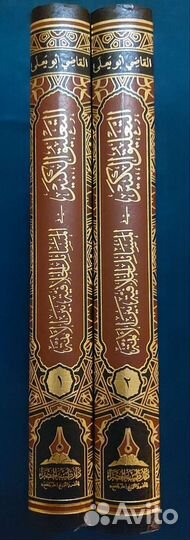 القاضي أبو يعلى
التعليق الكبير
في
المسائل الخلافية بين الأئمة
١
القاضي أبو يعلى
التعليق الكبير
في
المسائل الخلافية بين الأئمة
٢
Avito